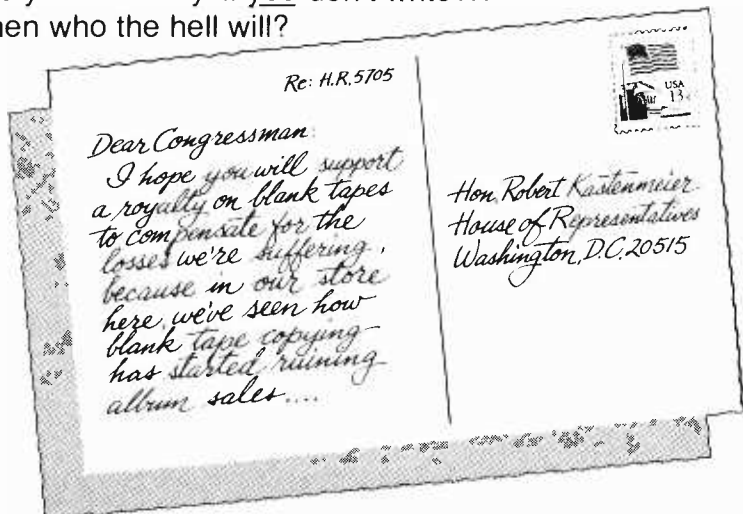 you don't write it
hen who the hell will?
Re: H.R. 5705
Dear Congressman:
I hope you will support
a royalty on blank tapes
to compensate for the
losses we're suffering,
because in our store
here, we've seen how
blank tape copying
has started ruining
album sales....
USA
13c
Hon. Robert Kastenmeier
House of Representatives
Washington, D.C. 20515